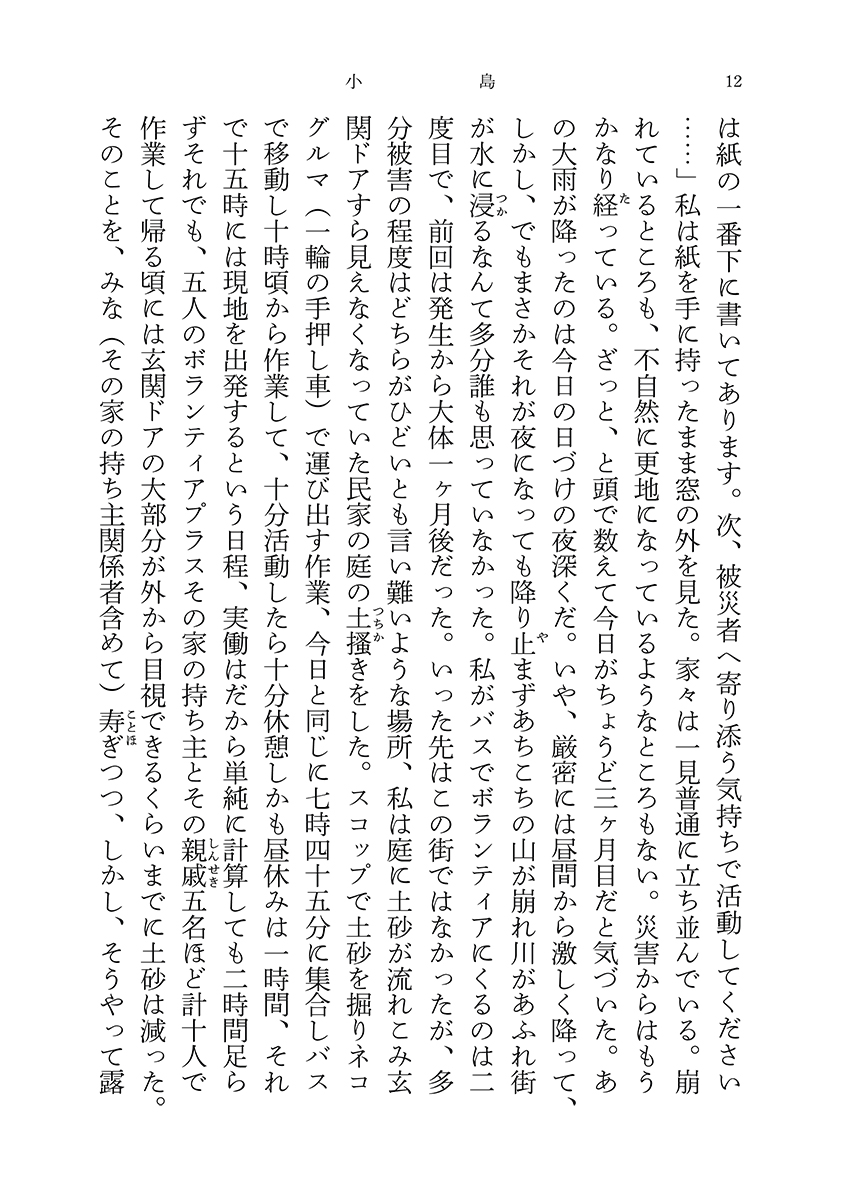 小島
12
は紙の一番下に書いてあります。次、被災者へ寄り添う気持ちで活動してください
……」私は紙を手に持ったまま窓の外を見た。家々は一見普通に立ち並んでいる。崩
れているところも、不自然に更地になっているようなところもない。災害からはもう
かなり経っている。ざっと、と頭で数えて今日がちょうど三ヶ月目だと気づいた。あ
の大雨が降ったのは今日の日づけの夜深くだ。いや、厳密には昼間から激しく降って、
しかし、でもまさかそれが夜になっても降り止まずあちこちの山が崩れ川があふれ街
が水に浸るなんて多分誰も思っていなかった。私がバスでボランティアにくるのは二
度目で、前回は発生から大体一ヶ月後だった。いった先はこの街ではなかったが、多
分被害の程度はどちらがひどいとも言い難いような場所、私は庭に土砂が流れこみ玄
関ドアすら見えなくなっていた民家の庭の土掻きをした。スコップで土砂を掘りネコ
グルマ（一輪の手押し車）で運び出す作業、今日と同じに七時四十五分に集合しバス
で移動し十時頃から作業して、十分活動したら十分休憩しかも昼休みは一時間、それ
で十五時には現地を出発するという日程、実働はだから単純に計算しても二時間足ら
ずそれでも、五人のボランティアプラスその家の持ち主とその親戚五名ほど計十人で
作業して帰る頃には玄関ドアの大部分が外から目視できるくらいまでに土砂は減った。
そのことを、みな（その家の持ち主関係者含めて）寿ぎつつ、しかし、そうやって露
た
つか
や
つちか
しんせき
ことほ